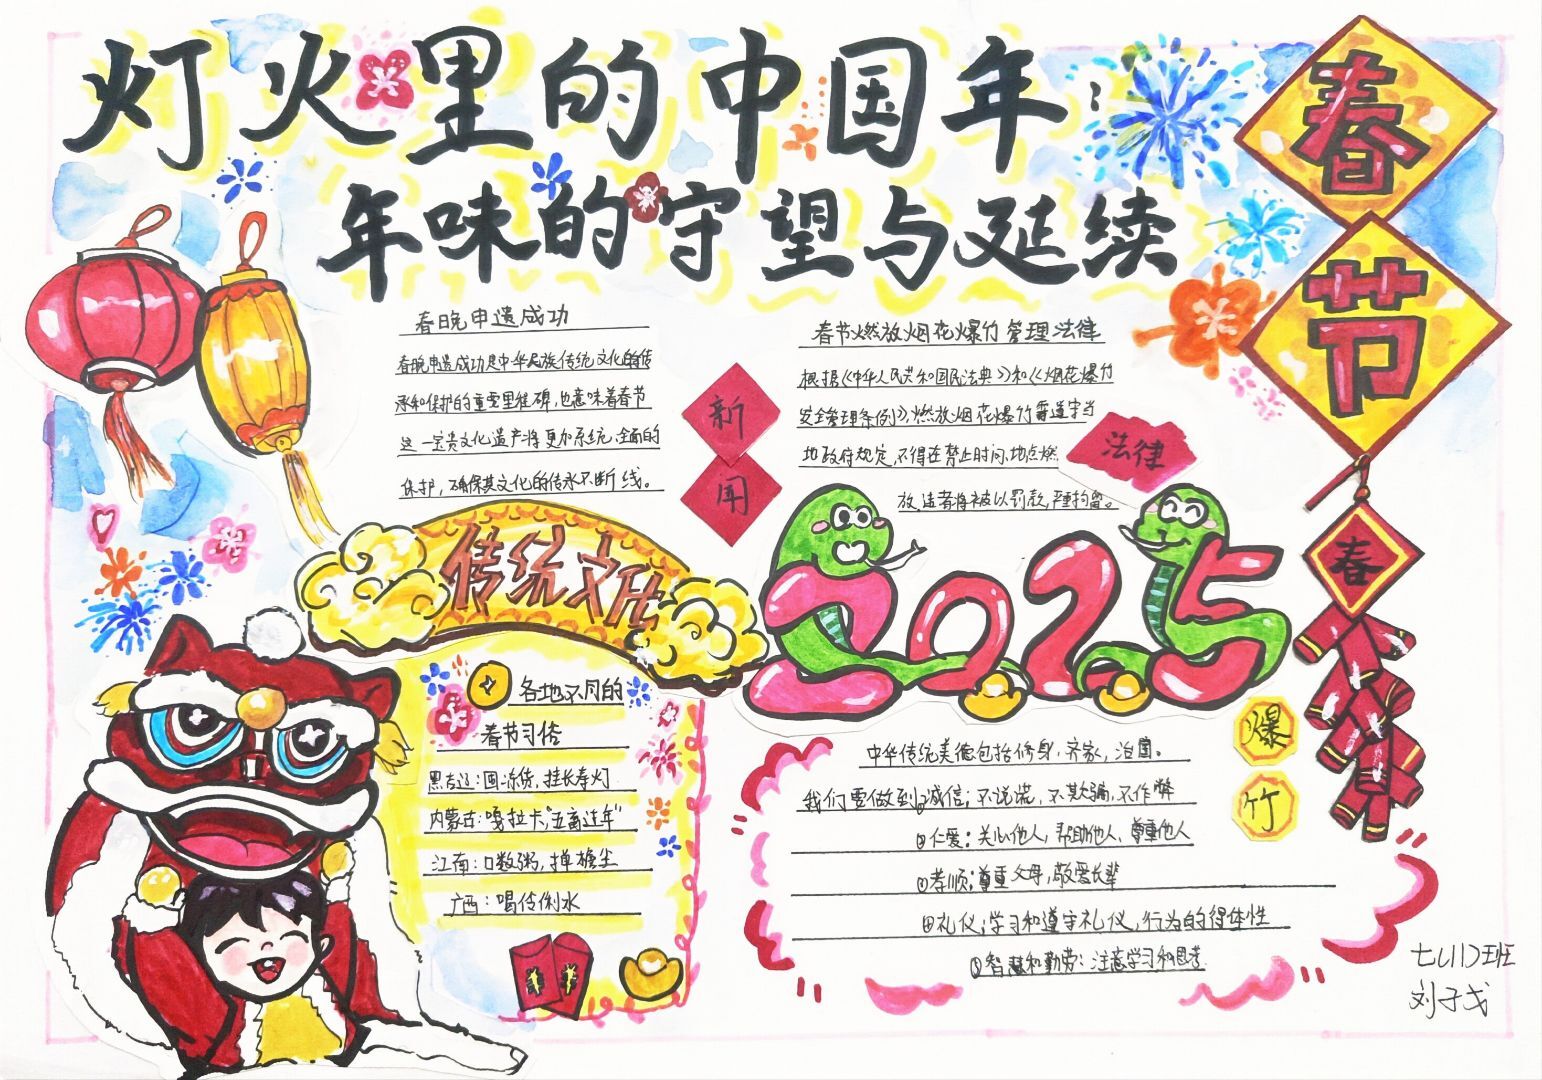 灯火里的中国年:
年味的守望与延续
春节
春晚申遗成功
春晚申遗成功是中华民族传统文化的传
承和保护的重要里程碑,也意味着春节
这一宝贵文化遗产将更加系统、全面的
保护,确保其文化的传承不断线。
新闻
春节燃放烟花爆竹管理法律
根据《中华人民共和国民法典》和《烟花爆竹
安全管理条例》,燃放烟花爆竹需遵守当
地政府规定,不得在禁止时间、地点燃
放,违者将被以罚款,严重拘留。
法律
传统文化
2025
春
各地不同的
春节习俗
黑龙江:囤冻货,挂长寿灯
内蒙古:嘎拉卡,"五畜过年"
江南:口数粥,掸檐尘
广西:喝伶俐水
爆竹
中华传统美德包括修身,齐家,治国。
我们要做到:诚信;不说谎,不欺骗,不作弊
仁爱:关心他人,帮助他人,尊重他人
孝顺:尊重父母,敬爱长辈
礼仪;学习和遵守礼仪,行为的得体性
智慧和勤劳:注意学习和思考
七(11)班
刘子戈